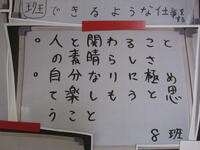 できるような仕事
。人と関わること
の素晴らしさ
。自分なりに極め
て楽しもうと思
うこと
8班